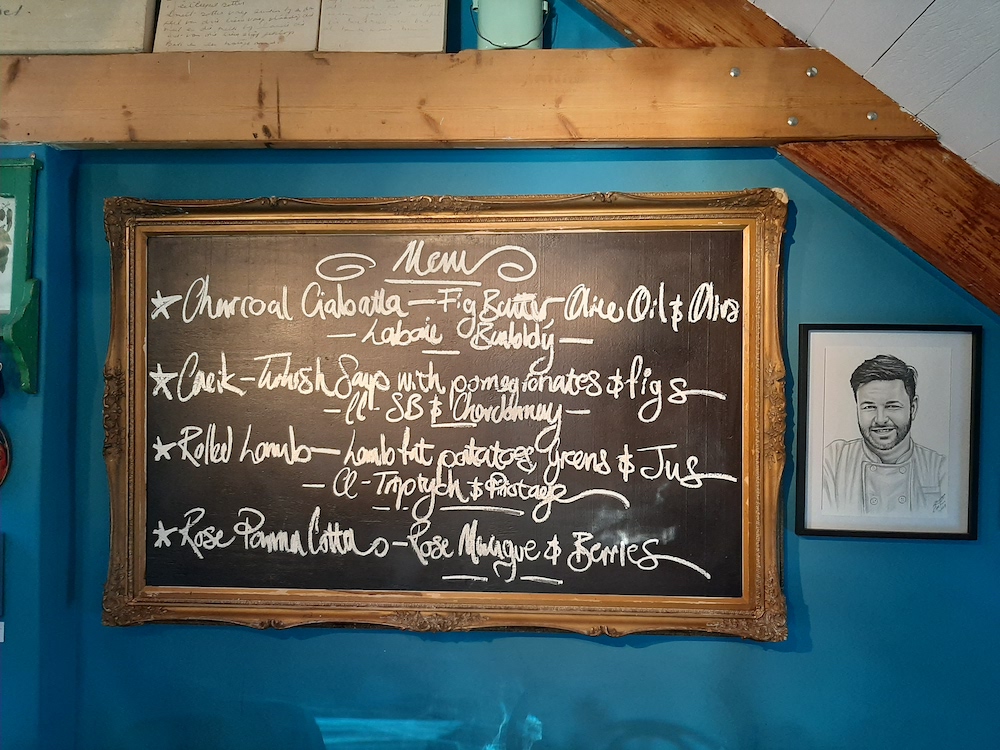 Menu
Charcoal Ciabatta - Fig Butter - Olive Oil & Olivs
- Laborie Bubbly -
- Turkish Says with pomegranates & figs
- CC - SB & Chardonnay -
Rolled Lamb - Lamb fat potatoes greens & Jus
- CC - Triptych & Pinotage
Rose Panna Cotta - Rose Meringue & Berries